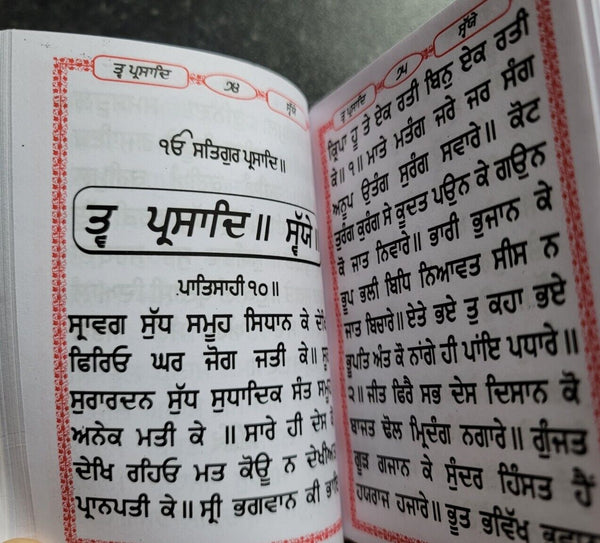 ਤ੍ਵ ਪ੍ਰਸਾਦਿ ੭੪ ਸ੍ਵੈਯੇ
ੴ ਸਤਿਗੁਰ ਪ੍ਰਸਾਦਿ॥
ਤ੍ਵ ਪ੍ਰਸਾਦਿ॥ ਸ੍ਵੈਯੇ॥
ਪਾਤਿਸਾਹੀ ੧੦॥
ਸ੍ਰਾਵਗ ਸੁੱਧ ਸਮੂਹ ਸਿਧਾਨ ਕੇ
ਫਿਰਿਓ ਘਰ ਜੋਗ ਜਤੀ ਕੇ॥
ਸੁਰਾਰਦਨ ਸੁੱਧ ਸੁਧਾਦਿਕ ਸੰਤ
ਅਨੇਕ ਮਤੀ ਕੇ ॥ ਸਾਰੇ ਹੀ ਦੇਸ
ਦੇਖਿ ਰਹਿਓ ਮਤ ਕੋਊ ਨ
ਪ੍ਰਾਨਪਤੀ ਕੇ॥ ਸ੍ਰੀ ਭਗਵਾਨ ਕੀ
ਤ੍ਵ ਪ੍ਰਸਾਦਿ ੭੫ ਸ੍ਵੈਯੇ
ਕ੍ਰਿਪਾ ਹੂ ਤੇ ਏਕ ਰਤੀ ਬਿਨੁ ਏਕ ਰਤੀ
ਕੇ॥੧॥ ਮਾਤੇ ਮਤੰਗ ਜਰੇ ਜਰ ਸੰਗ
ਅਨੂਪ ਉਤੰਗ ਸੁਰੰਗ ਸਵਾਰੇ॥ ਕੋਟ
ਤੁਰੰਗ ਕੁਰੰਗ ਸੇ ਕੂਦਤ ਪਉਨ ਕੇ ਗਉਨ
ਕੋ ਜਾਤ ਨਿਵਾਰੇ॥ ਭਾਰੀ ਭੁਜਾਨ ਕੇ
ਭੂਪ ਭਲੀ ਬਿਧਿ ਨਿਆਵਤ ਸੀਸ ਨ
ਜਾਤ ਬਿਚਾਰੇ॥ ਏਤੇ ਭਏ ਤੁ ਕਹਾ ਭਏ
ਭੂਪਤਿ ਅੰਤ ਕੋ ਨਾਂਗੇ ਹੀ ਪਾਂਇ ਪਧਾਰੇ॥
੨॥ਜੀਤ ਫਿਰੈ ਸਭ ਦੇਸ ਦਿਸਾਨ ਕੋ
ਬਾਜਤ ਢੋਲ ਮ੍ਰਿਦੰਗ ਨਗਾਰੇ॥ ਗੁੰਜਤ
ਗੂੜ ਗਜਾਨ ਕੇ ਸੁੰਦਰ ਹਿੰਸਤ ਹੈਂ
ਹਯਰਾਜ ਹਜਾਰੇ॥ ਭੂਤ ਭਵਿੱਖ